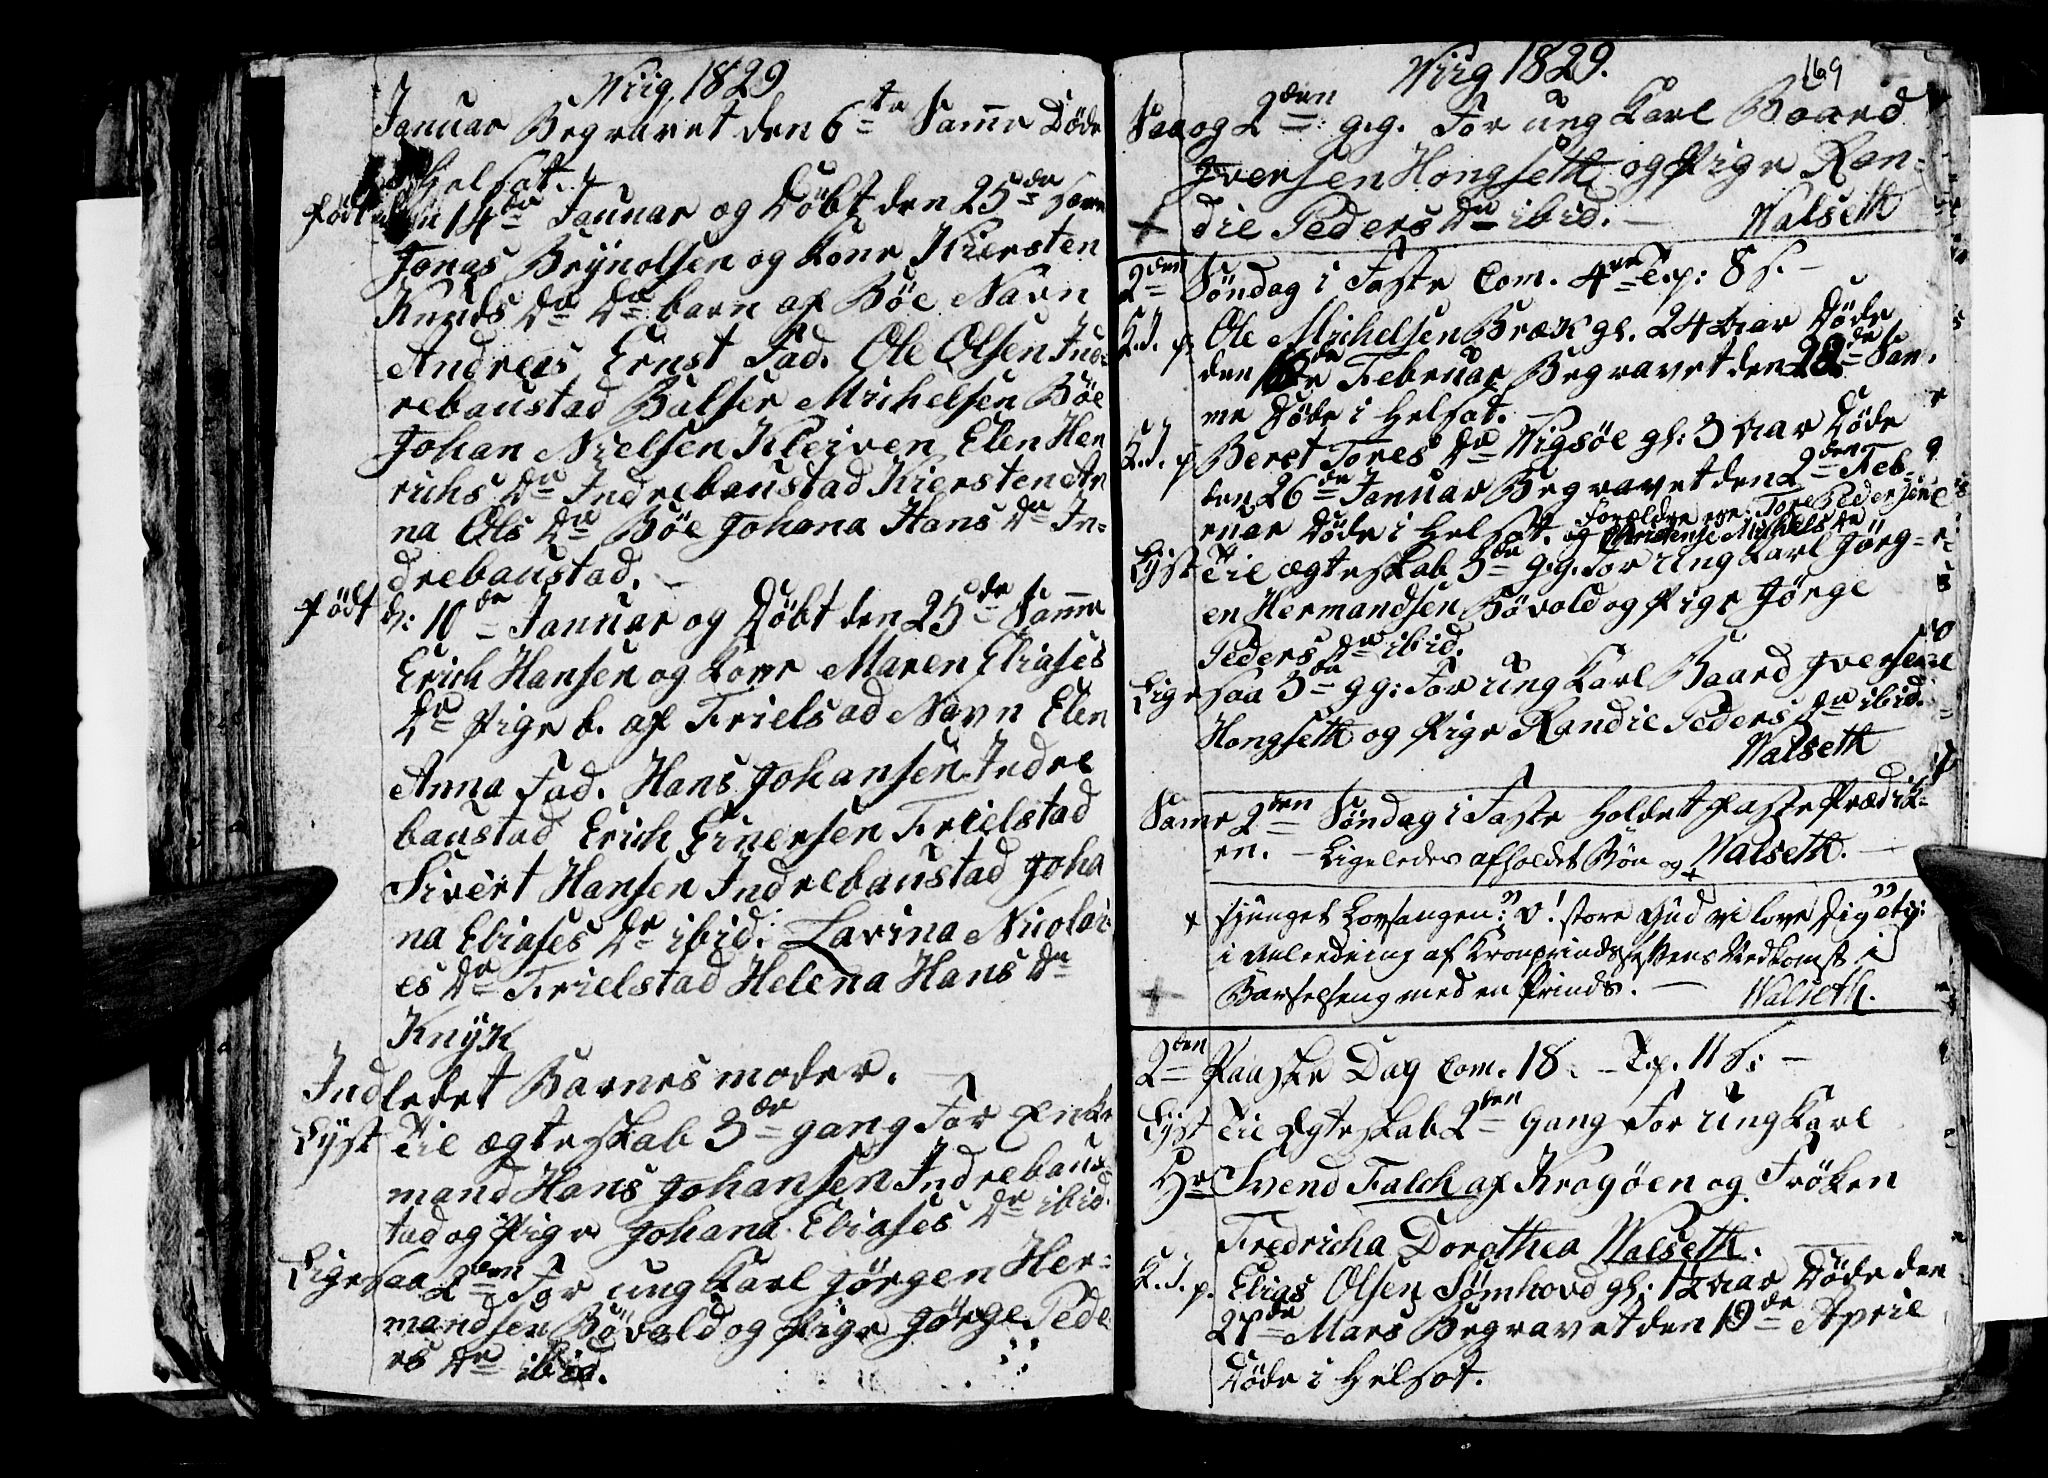 Wiig 1829
Januar Begravet den 6te Samme Døde
i Helsot.
født den 14de Januar og Døbt den 25de Samme
Jonas Brÿnolsen og kone Kiersten
Knuds Dr Dr barn af Böe Navn
Andreas Ernst Fad. Ole Olsen Ind-
rebaustad Balser Michelsen Böe
Johan Nielsen Kleiven Elen Hen
richs Dr Indrebaustad Kiersten An
na Ols Dr Böe Johana Hans Dr In-
drebaustad.
født d: 10de Januar og Døbt den 25de Samme
Erich Hansen og kone Maren Eliases
Dr Pige b. af Frielstad Navn Elen
Anna Fad. Hans Johansen Indre
baustad Erich Einersen Frielstad
Sivert Hansen Indrebaustad Joha
na Eliases Dr ibid. Lavina Nicolai
es Dr Frielstad Helena Hans Dr
Knÿk
Indledet Barnesmoder.
Lÿst Til ægteskab 3de gang For Enke
mand Hans Johansen Indrebaus-
tad og Pige Johana Eliases Dr ibid.
Ligesaa 2den For ung Karl Jörgen Her-
mandsen Bövold og Pige Jörge Pede
rs Dr ibid.
Wiig 1829.
169
Saa og 2den g.g. For ung Karl Baard
Iversen Hongseth og Pige Ran-
die Peders Dr ibid. Walseth
2den Søndag i Faste Com. 4re Exp: 8 s.
K.J. p Ole Michelsen Bræk gl. 24 Aar Døde
den Februar Begravet den 28de Sam-
me Døde i Helsot.
K.J. p Beret Tores Dr Vigsöe gl: 3 Aar Døde
den 26de Januar Begravet den 2den Feb-
ruar Døde i Helsot. Forældre ere: Tore Pedersen
og Christense Michels Dr
Lÿst Til ægteskab 3de g.g. For ung Karl Jörg-
en Hermandsen Bövold og Pige Jörge
Peders Dr ibid.
Ligesaa 3de gg: For ung Karl Baard Iversen
Hongseth og Pige Randie Peders Dr ibid.
Walseth
Same 2den Søndag i Faste Holdet Faste Prædik-
en. Ligeledes afholdet Bön og Walseth.
sjunget Lovsangen: "O! store Gud vi love Dig" etc:
i Anledning af Kronprindsessens Nedkomst i
Barselseng med en Prinds. Walseth.
2den Paaske Dag Com. 18. Exp. 11 s:
Lÿst Til Egteskab 2den Gang For Ung Karl
Hr Svend Falch af Kragöen og Fröken
Fredricha Dorothea Walseth.
K.J. p. Elias Olsen Sömhovd gl: 12 Aar Døde den
27de Mars Begravet den 19de April
Døde i Helsot.